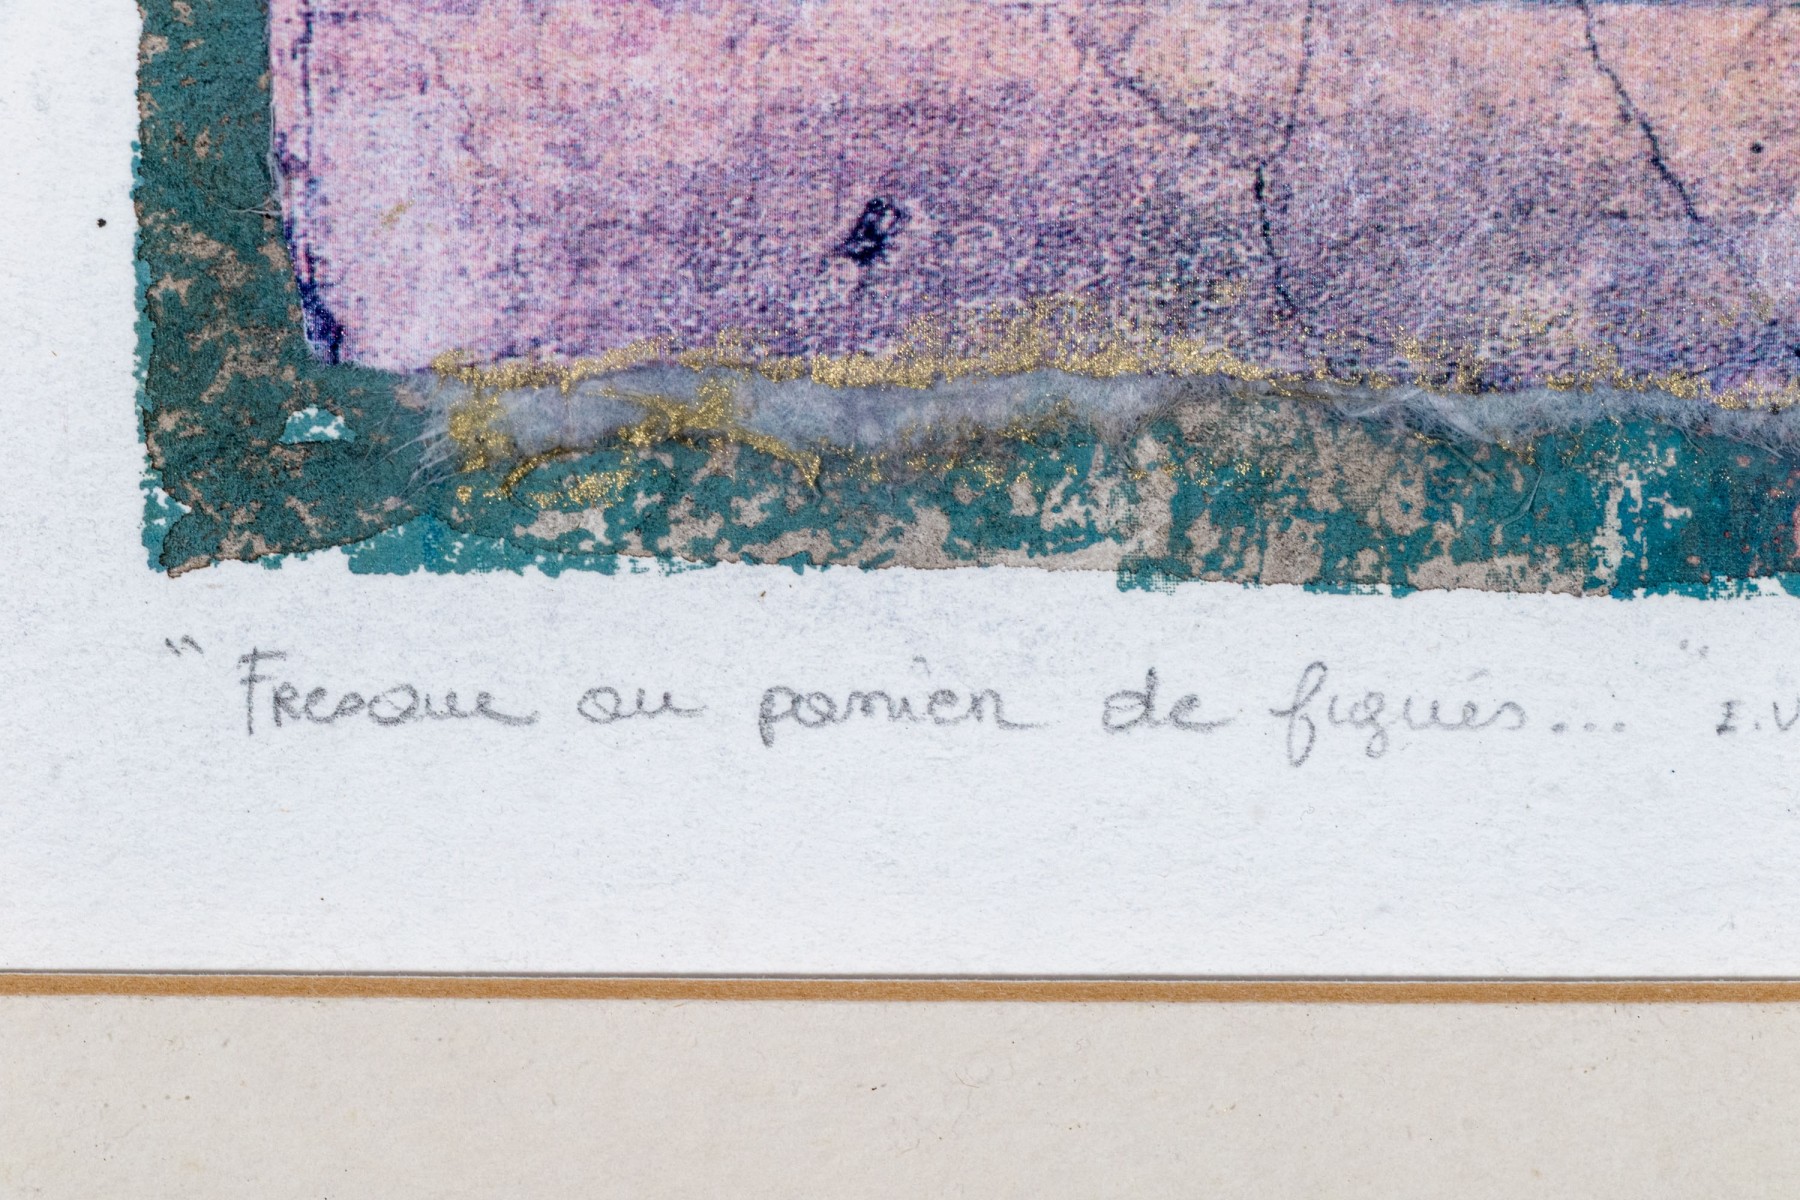 "Fresque au panier de figues..." I.V